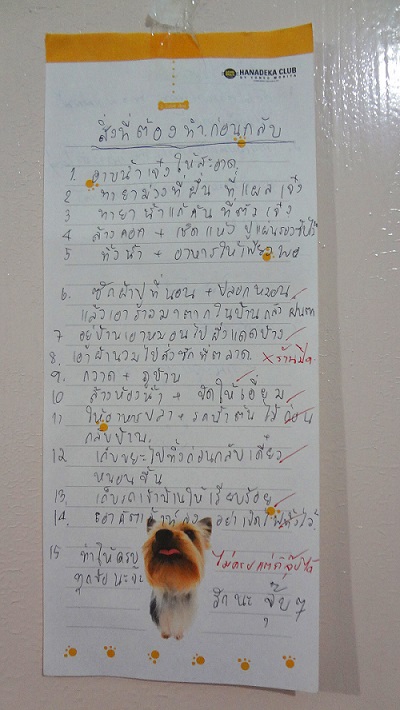 HANADEKA CLUB
สิ่งที่ต้องทำก่อนกลับ
1. อาบน้ำเจ๋งให้สะอาด
2 ทายาม่วงที่ผื่น ที่แผล เจ๋ง
3 ทายาน้ำแก้คันที่ตัว เจ๋ง
4 ล้างคอก + เช็ดแห้ง ปูแผ่นรองซับไว้
5 ตั้งน้ำ + อาหารให้เพียงพอ
6. ซักผ้าปูที่นอน + ปลอกหมอน
แล้วเอาเข้ามาตากในบ้านกลัวฝนตก
7 อยู่บ้านเอาหมอนไปผึ่งแดดบ้าง
8. เอาผ้านวมไปส่งซักที่ตลาด. × ร้านปิด
9. กวาด + ถูบ้าน
10 ล้างห้องน้ำ + ขัดให้เอี่ยม
11 ให้อาหารปลา + รดน้ำต้นไม้ก่อน
กลับบ้าน.
12 เก็บขยะไปทิ้งก่อนกลับ เดี๋ยว
หนอนขึ้น
13. เก็บเข้าบ้านให้เรียบร้อย
14. อย่าเปิดทิ้งไว้
15 ทำให้ครบ ไม่ครบแต่ก็จุ๊บได้
ทุกข้อนะจ๊ะ
รักนะ จุ๊บๆ